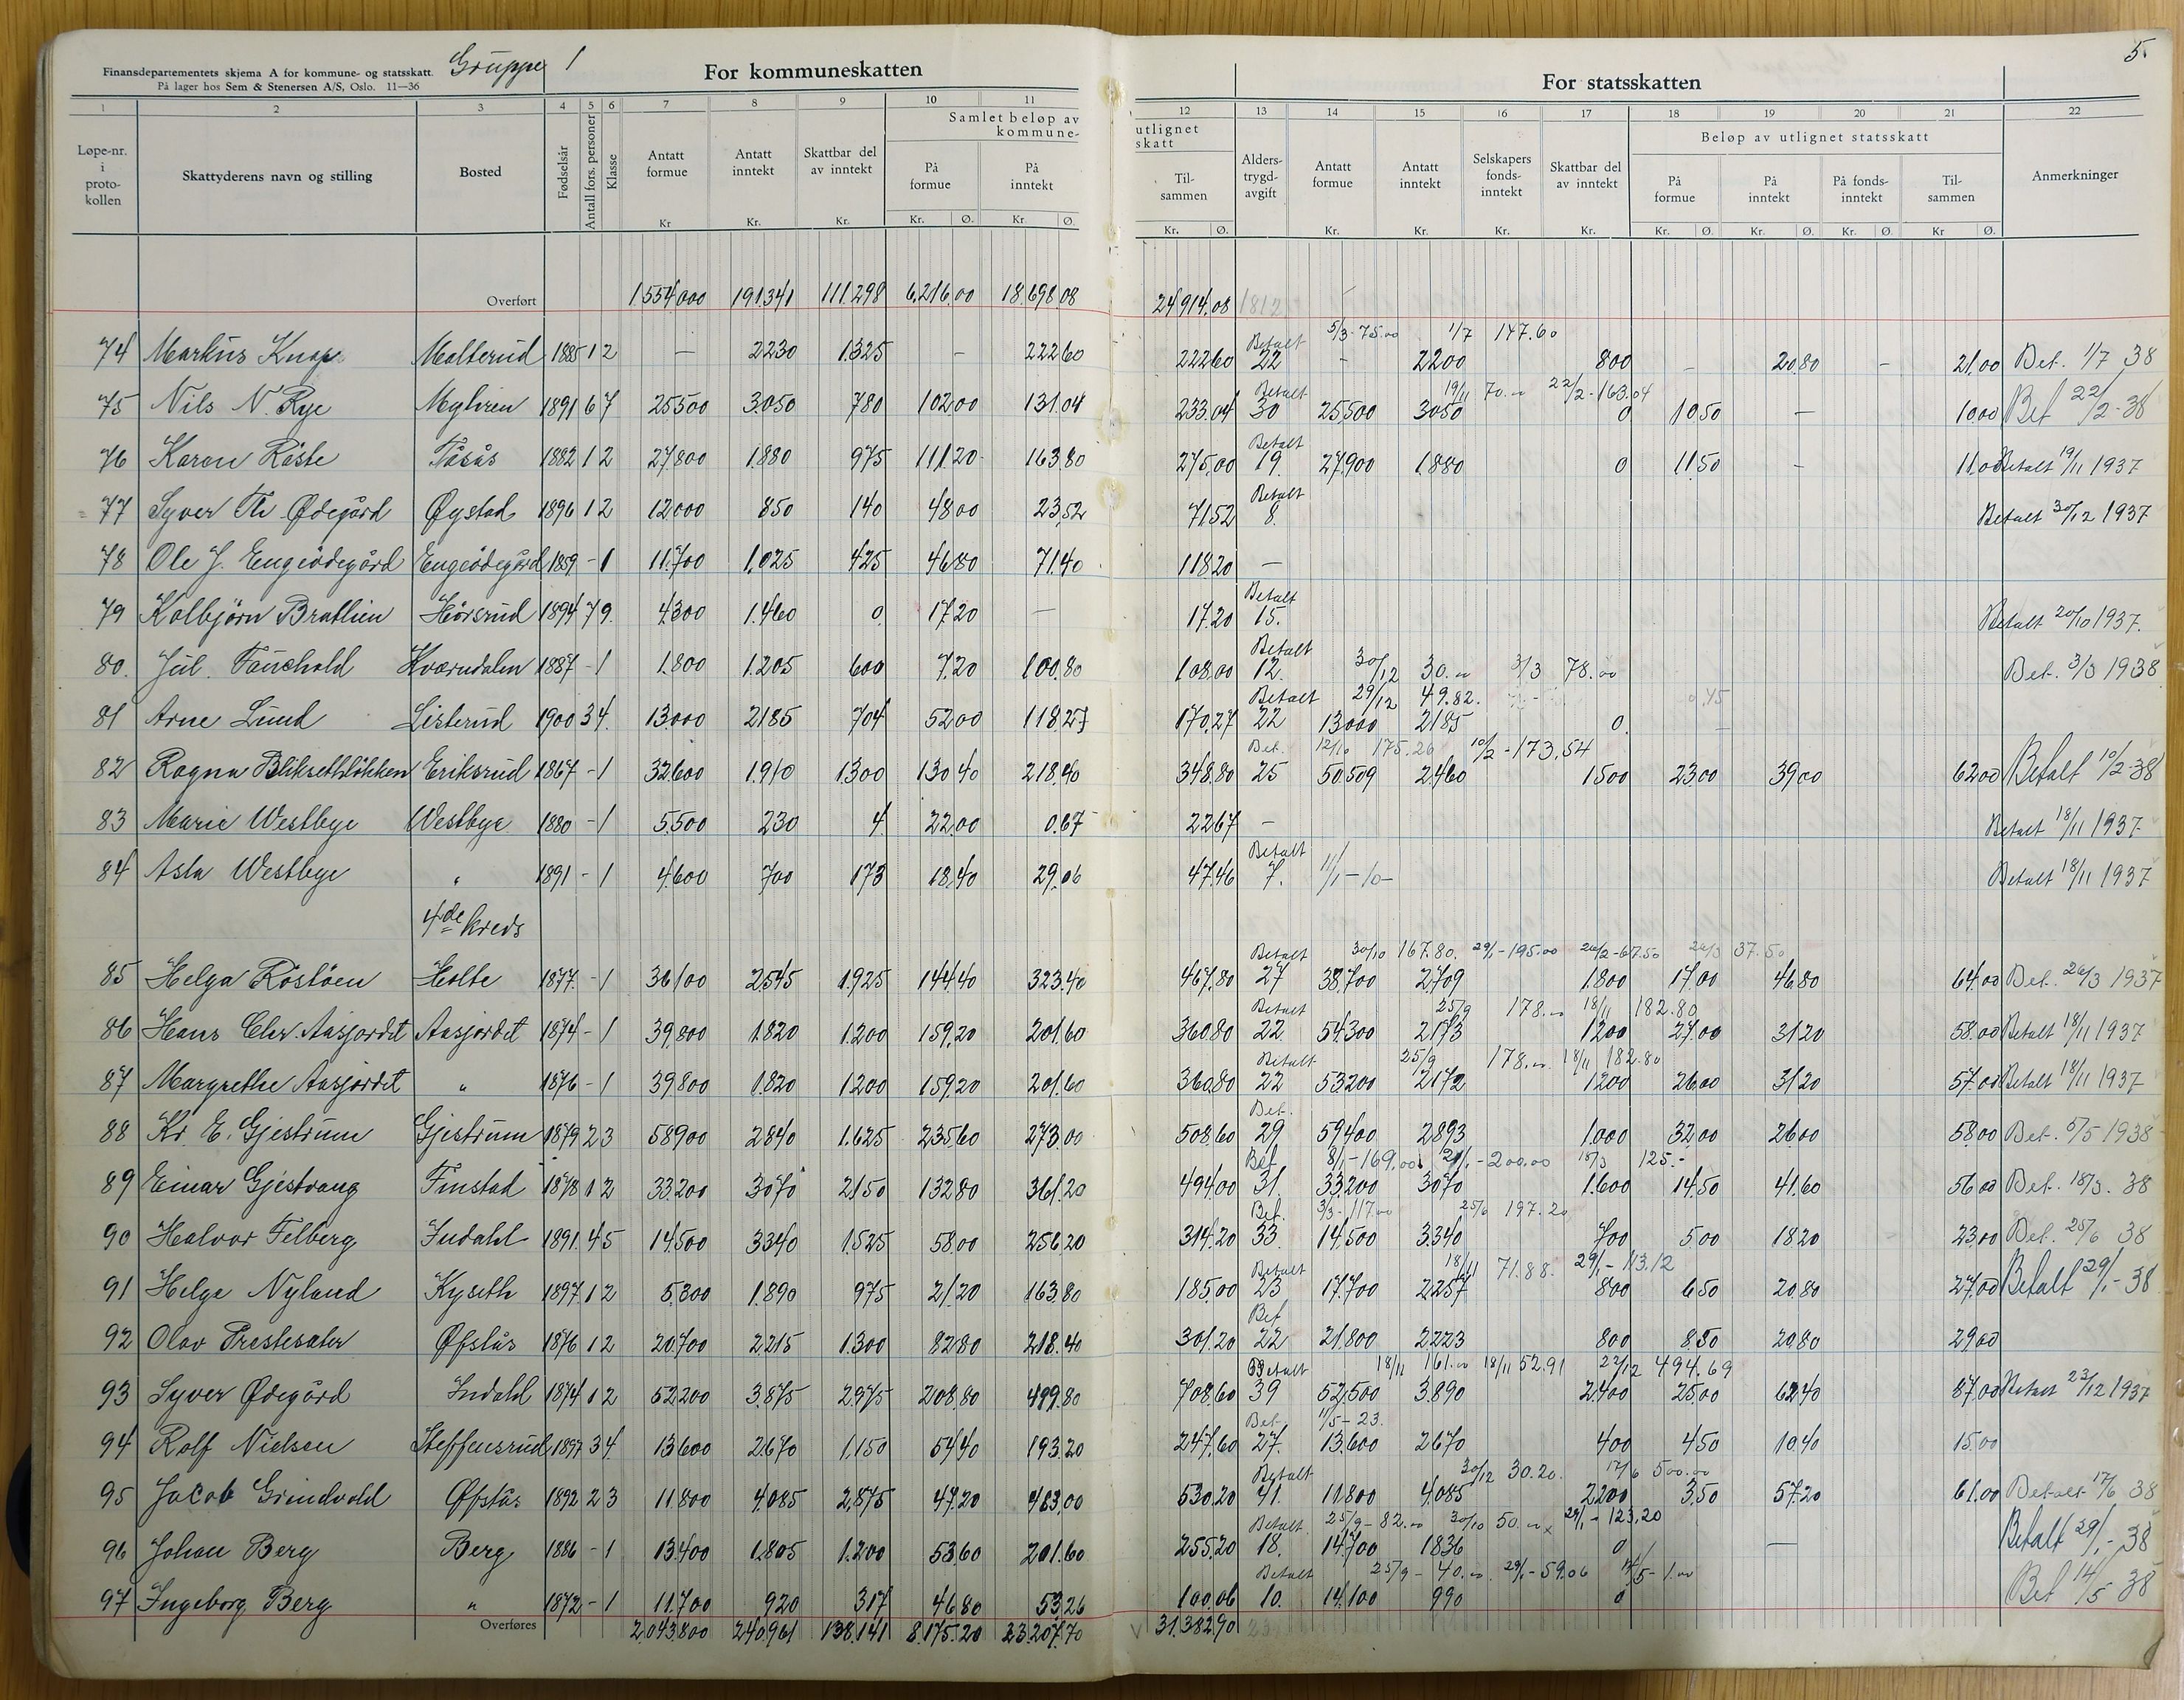 5.
Finansdepartementets skjema A for kommune- og statsskatt. Gruppe 1 For kommuneskatten For statsskatten
På lager hos Sem & Stenersen A/S, Oslo. 11—36
1 2 3 4 5 6 7 8 9 10 11 12 13 14 15 16 17 18 19 20 21 22
Løpe-nr. i proto-kollen Skattyderens navn og stilling Bosted Fødselsår Antall fors. personer Klasse Antatt formue Antatt inntekt Skattbar del av inntekt Samlet beløp av kommune- På formue På inntekt utlignet skatt Til-sammen Alders-trygd-avgift Antatt formue Antatt inntekt Selskapers fonds-inntekt Skattbar del av inntekt Beløp av utlignet statsskatt På formue På inntekt På fonds-inntekt Til-sammen Anmerkninger
Kr Kr. Kr. Kr. Ø. Kr. Ø. Kr. Ø. Kr. Kr. Kr. Kr. Kr. Ø. Kr. Ø. Kr. Ø. Kr Ø.
Overført 1554000 191341 111298 6,216.00 18.698.08 24914.08 1812
Betalt 5/3-75.00 1/7 147.60
74 Markus Knap Malterud 1885 1 2 — 2230 1325 — 222 60 222 60 22 - 2200 800 - 20.80 - 21.00 Bet. 1/7 38
Betalt 19/11 70.00 22/2-163.04
75 Nils N. Rye Myhren 1891 6 7 25500 3050 780 102 00 131.04 233.04 30 25500 3050 0 10.50 — 10.00 Bet 22/2-38
Betalt
76 Karen Röste Tåsås 1882 1 2 27800 1.880 975 111.20 163.80 275.00 19 27.900 1.880 0 11.50 - 11.00 Betalt 19/11 1937
Betalt
77 Syver Th Ødegård Øystad 1896 1 2 12000 850 140 48 00 23.52 71 52 8. Betalt 30/12 1937
78 Ole J. Engeödegård Engeödegård 1859 - 1 11.700 1.025 425 46 80 71.40 118 20 —
Betalt
79 Kolbjörn Brathien Hörsrud 1894 7 9. 4300 1.460 0 17 20 — 17.20 15. Betalt 20/10 1937.
Betalt 30/12 30.00 3/3 78.00
80. Jul. Tauchold Kværndalen 1887 - 1 1.800 1.205 600 7.20 100.80 108.00 12. Bet. 3/3 1938
Betalt 29/12 49.82.
81 Arne Lund Listerud 1900 3 4. 13.000 2185 704 52 00 118.27 170.27 22 13000 2185 0
Bet. 12/10 175.26 10/2-173,54
82 Ragna Bliksethlökken Eriksrud 1867 - 1 32600 1.910 1300 130 40 218.40 348.80 25 50.509 2.460 1500 23 00 39 00 62 00 Betalt 10/2-38
83 Marie Westbye Westbye 1880 - 1 5500 230 4 22.00 0.67 22 67 — Betalt 18/11 1937
Betalt
84 Asta Westbye " 1891 - 1 4600 700 173 18.40 29.06 47.46 7. 11/1-10- Betalt 18/11 1937
4de kreds
Betalt 30/10 167.80. 29/1-195.00 26/2-67.50 26/3 37.50
85 Helga Röstöen Holte 1877 - 1 36100 2545 1.925 144.40 323.40 467.80 27 38.700 2.709 1.800 17.00 46.80 64.00 Bet. 26/3 1937
Betalt 25/9 178.00 18/11 182.80
86 Hans Chr. Aasjordet Aasjordet 1874 - 1 39.800 1.820 1.200 159,20 201.60 360.80 22 54.300 2173 1200 27.00 31 20 58.00 Betalt 18/11 1937
Betalt 25/9 178.00 18/11 182.80
87 Margrethe Aasjordet " 1876 - 1 39800 1.820 1200 159.20 201.60 360.80 22 53200 2172 1200 26 00 31 20 57.00 Betalt 18/11 1937
Bet.
88 Kr E. Gjestrum Gjestrum 1879 2 3 58900 2840 1.625 235.60 273.00 508.60 29 59400 2893 1.000 32 00 26 00 58 00 Bet. 5/5 1938
Bet. 8/1-169.00 29/1-200.00 18/3 125.-
89 Einar Gjestvang Finstad 1878 1 2 33.200 3070 2150 132 80 361.20 494.00 31 33200 3070 1.600 14.50 41.60 56 00 Bet. 18/3. 38
Bet. 3/3-117.00 25/6 197.20
90 Halvor Felberg Indahl 1891. 4 5 14500 3340 1525 58.00 256.20 314.20 33 14.500 3.340 700 5.00 18 20 23.00 Bet. 25/6 38
Betalt 18/11 71.88. 29/1-113.12
91 Helge Nyland Kyseth 1897. 1 2 5.300 1.890 975 21.20 163.80 185.00 23 17.700 2257 800 6 50 20.80 27.00 Betalt 29/1-38
Bet
92 Olav Prestesater Øfstås 1876 1 2 20.700 2.215 1.300 82 80 218.40 301.20 22 21.800 2223 800 8.50 20 80 29 00
Betalt 18/11 161.00 18/11 52.91 23/12 494.69
93 Syver Ødegård Indahl 1874 1 2 52200 3.875 2975 208.80 499.80 708.60 39 52,500 3.890 2.400 25 00 62.40 87.00 Betalt 23/12 1937
Bet. 11/5-23.
94 Rolf Nielsen Steffensrud 1897 3 4. 13600 2670 1.150 54 40 193.20 247.60 27. 13.600 2670 400 4 50 10.40 15.00
Betalt 30/12 30.20. 17/6 500.00
95 Jacob Grindvold Øfstås 1892 2 3 11.800 4.085 2.875 47.20 483,00 530.20 41. 11.800 4.085 2200 3.50 57.20 61.00 Betalt 17/6 38
Betalt 25/9-82.00 30/10 50.00 x 29/1-123.20
96 Johan Berg Berg 1886 - 1 13.400 1.805 1.200 53.60 201.60 255.20 18. 14.700 1836 0 — Betalt 29/1-38
Betalt 25/9-40.00 29/1-59.06 14/5-1.00
97 Ingeborg Berg " 1872 - 1 11.700 920 317 46.80 53.26 100.06 10. 14.100 990 0 Bet 14/5 38
Overføres 2.043.800 240.961 138.141 8.175.20 23.207.70 31.382.90